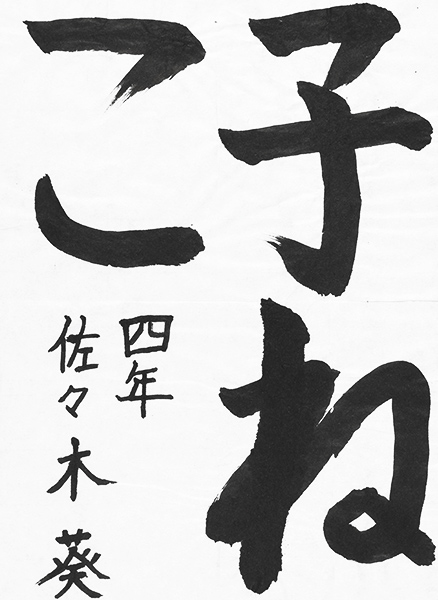 子ね
こ
四年
佐々木葵